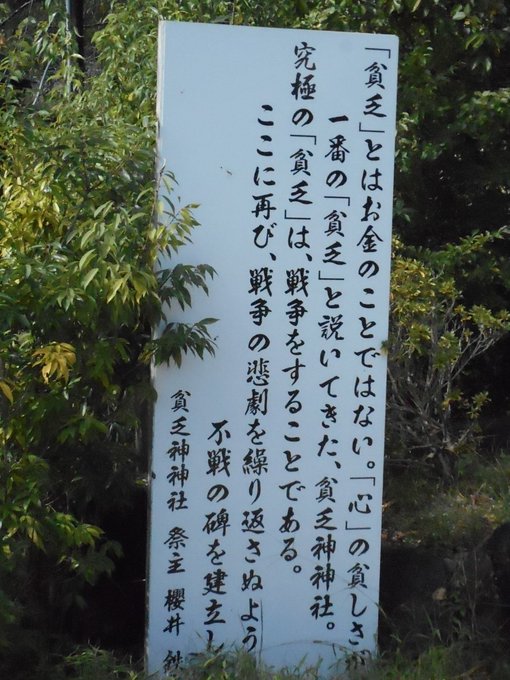 「貧乏」とはお金のことではない。「心」の貧しさが
一番の「貧乏」と説いてきた、貧乏神神社。
究極の「貧乏」は、戦争をすることである。
ここに再び、戦争の悲劇を繰り返さぬよう
不戦の碑を建立し
貧乏神神社 祭主 櫻井 鉄